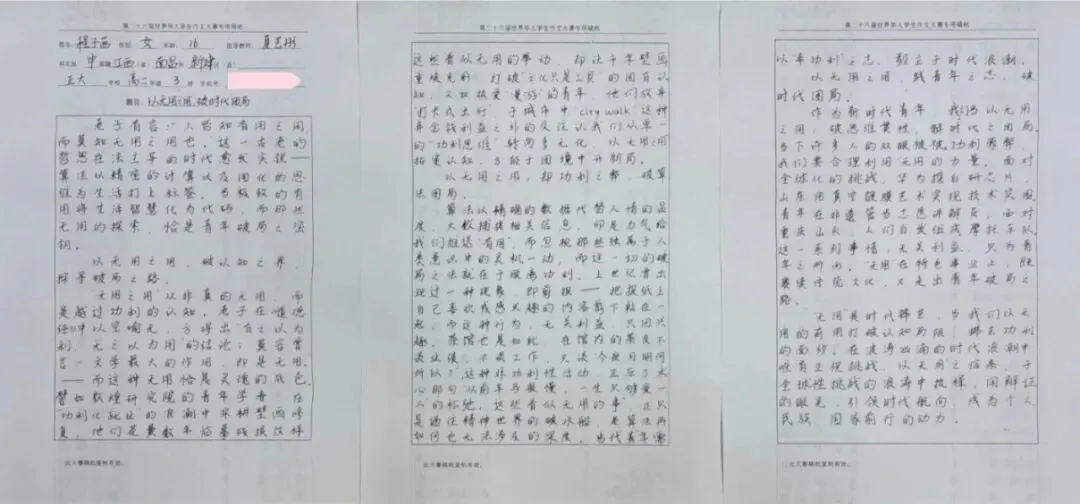 第二十六届世界华人学生作文大赛专用稿纸
姓名 程子函 性别 女 年龄 16 指导教师
江西 省 南昌 市 新建
正大 学校 高二 年级 3 班 手机号
题目：以无用之用，破时代困局
老子有言：“人皆知有用之用，
而莫知无用之用也。”这一古老的
哲思在法主导的时代愈发尖锐——
算法以精密的计算以及固化的思
维为生活打上标签。当极致的有
用将生活智慧化为代码，而那些
无用的探索，恰是青年破局之密
钥。
以无用之用，破认知之界，
探寻破局之路。
“无用之用”以非真的无用，而
是越过功利的认知。老子在《道德
经》中以空喻无，方得出“有之以为
利，无之以为用”的结论；莫言曾
言：“文学最大的作用，即是无用。”
——而这种无用恰是灵魂的底色。
譬如敦煌研究院的青年学者，在
“功利化至上”的浪潮中来耕壁画修
复，他们是数年临摹残损纹样
这些看似无用的举动，却让千年壁画
重焕光彩，打破“文化只是工具”的固有认
知。又如推崇“漫游”的青年，他们放弃
“打卡式出行”，于城市中city walk，这种
弃金钱利益之外的关注让我们从单一
的“功利思维”转向多元化，以无用之用
拓宽认知，方能于困境中开新局。
以无用之用，却功利之弊，破算
法困局。
算法以精确的数据代替人情的温
度，大数据捕捉相关信息，却是力气给
我们推送“有用”，而忽视那些独属于人
类意识中的灵机一动，而这一切的破
局之法就在于脱离功利。上世纪曾出
现过一种现象，即剪报——把报纸上
自己喜欢或感兴趣的内容剪下粘在一
起，而这种行为，无关利益，只因兴
趣。茶馆也是如此，在馆内的茶友不
谈业绩，不谈工作，只谈“今夜月明何
所以？”这种非功利性活动，正应了木
心那句“从前车马很慢，一生只够爱一
人”的松弛，这些看似无用的事，正只
是通往精神世界的破冰船，是算法再
如何也无法涉足的深度。当代青年需
以“非功利”之志，毅立于时代浪潮。
以无用之用，践青年之志，破
时代困局。
作为新时代青年，我们当以无用
之用，破思维惯性，解时代之困局。
当下许多人的双眼被被功利蒙蔽，
我们要合理利用“无用”的力量。面对
全球化的挑战，华为探自研芯片，
山东用真空镀膜艺术实现技术突围，
青年在非遗馆当志愿讲解员，面对
重庆山火，人们自发组成摩托车队，
这一系列事情，无关利益，只为青
年之所向。“无用”在特色事业上，既
赓续传统文化，又走出青年破局之
路。
“无用”是时代解药，当我们以无
用的有用打破认知局限，掷去功利
的面纱，在波涛汹涌的时代浪潮中
唯有正视挑战，以无用之信条，于
全球性挑战的浪涛中投桦，用辩证
的眼光，引领时代航向，成为个人、
民族、国家前行的动力。
此大赛稿纸复制有效。